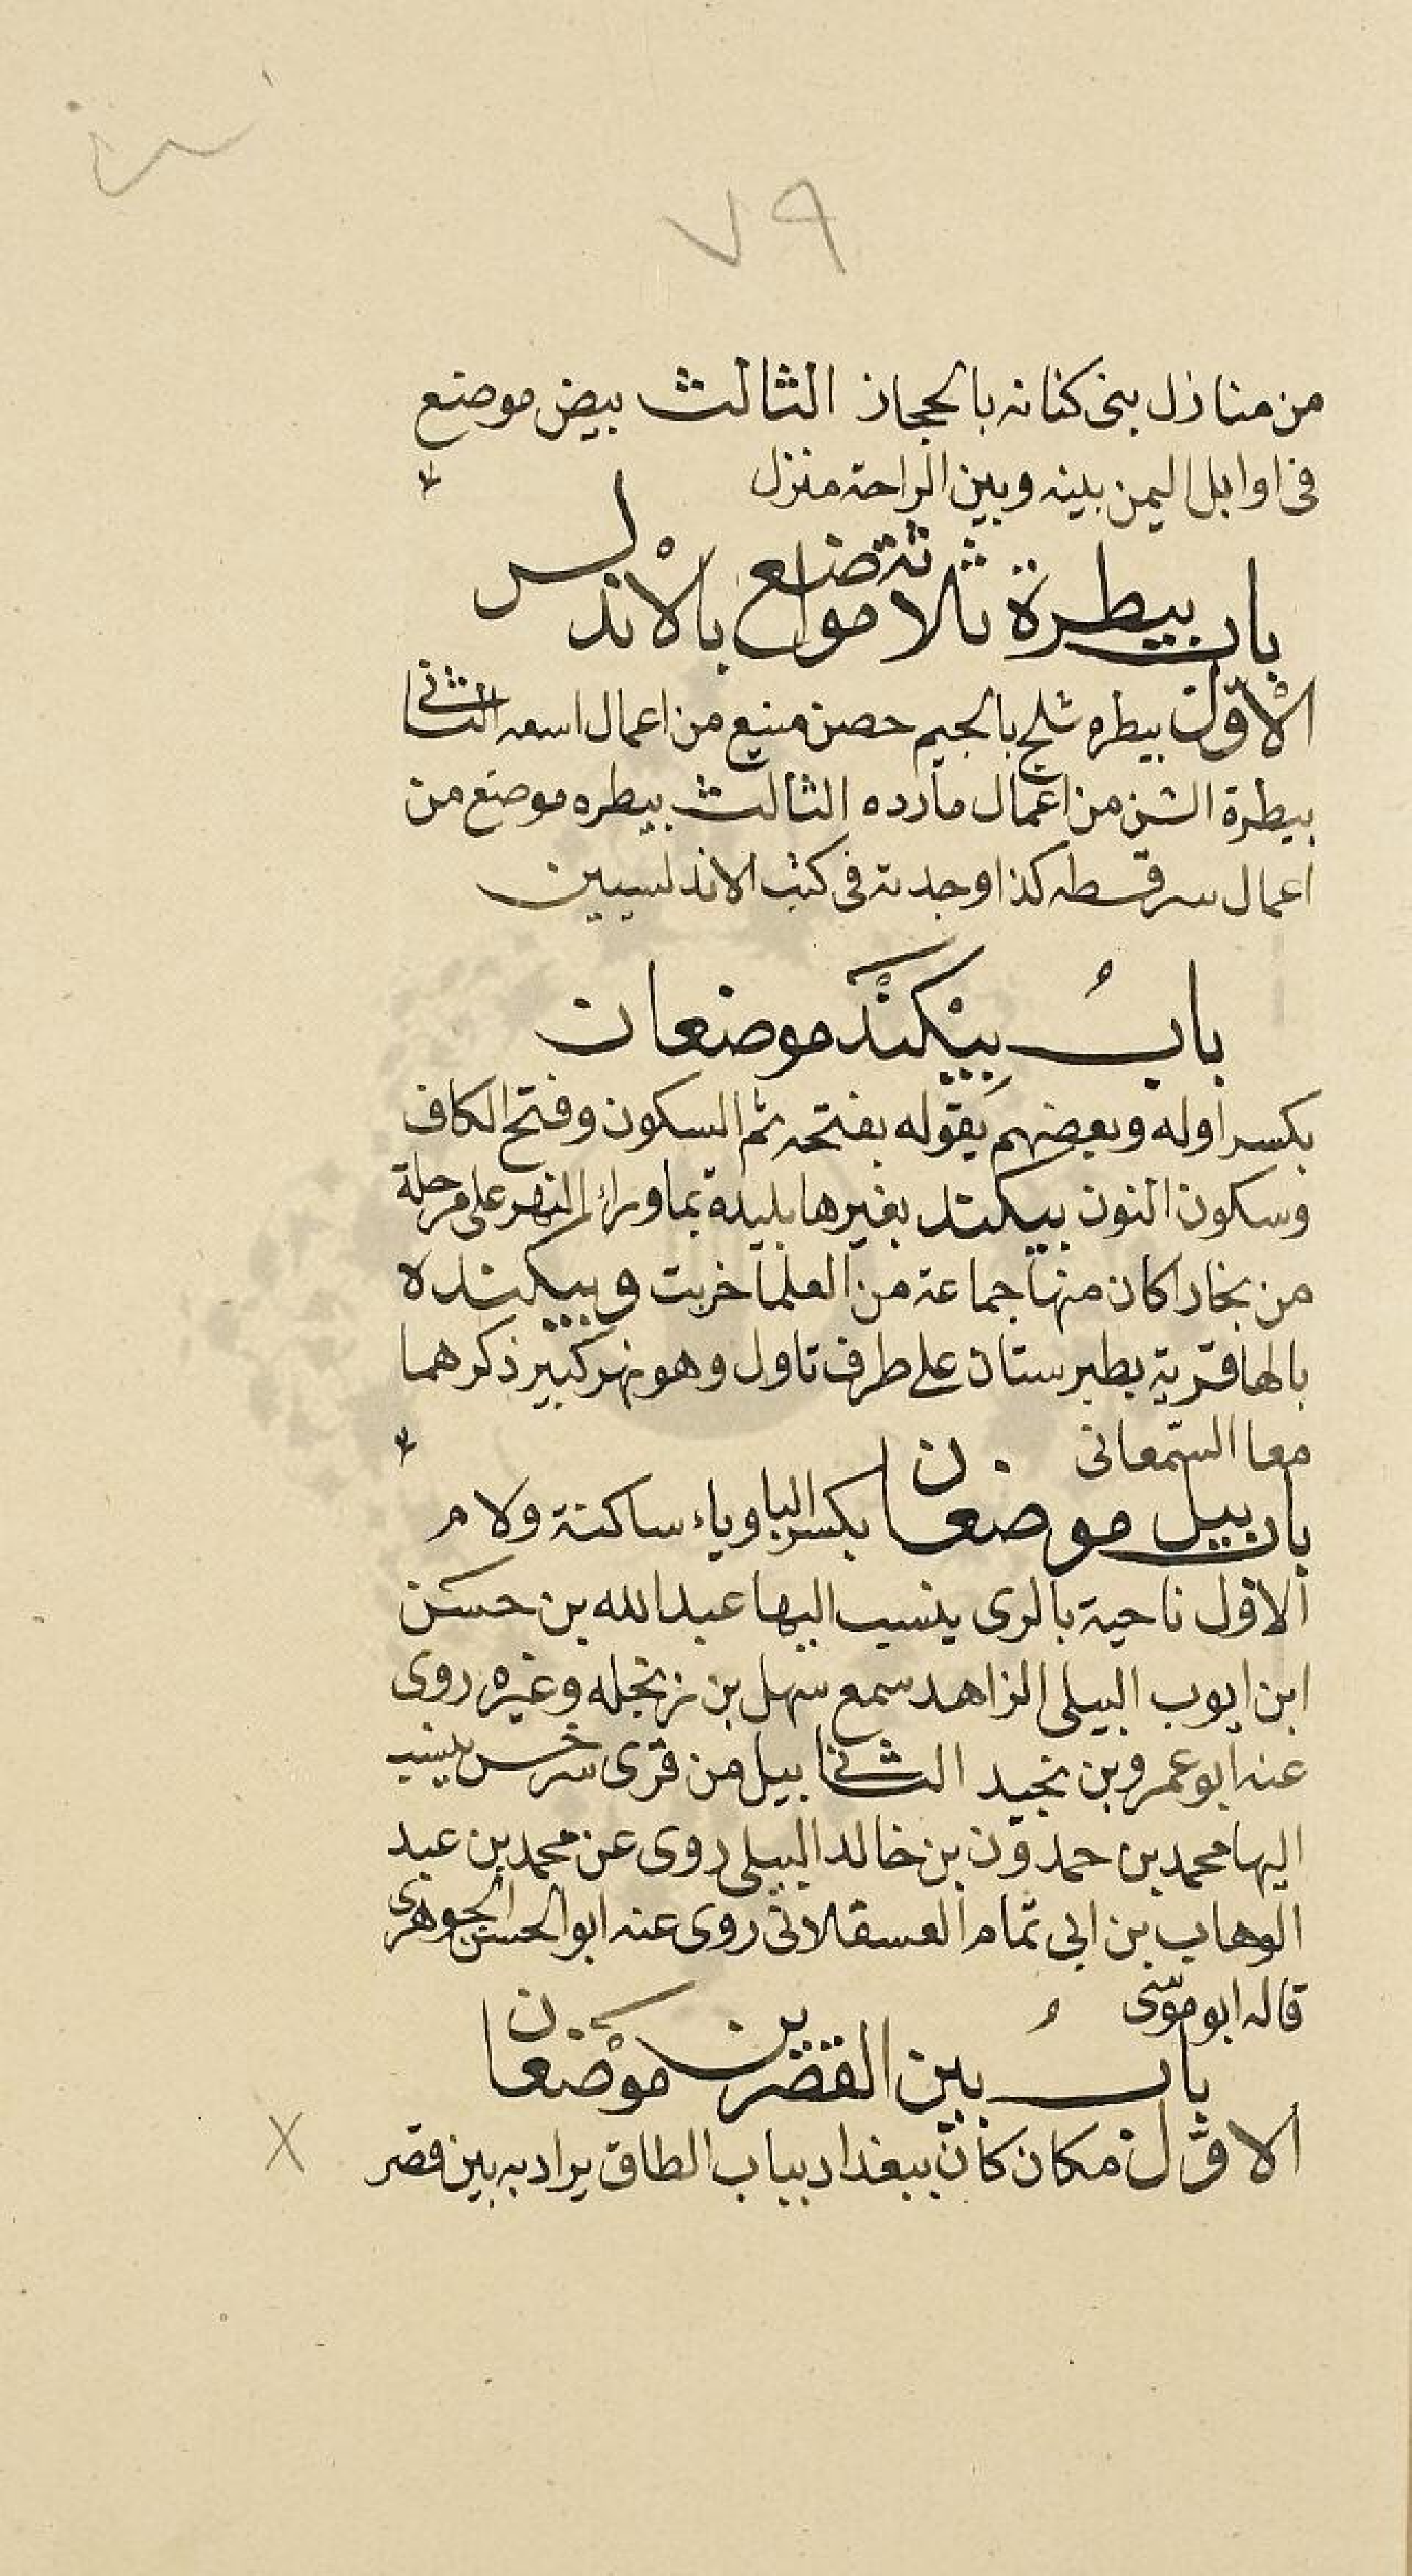 ٧٩
من منازل بنى كنانه بالحجاز الثالث بيض موضع
فى اوايل اليمن بينه وبين الراحة منزل
باب بيطرة ثلاثة مواضع بالأندلس
الأوّل بيطره شلج بالجيم حصن منيع من اعمال اسعه الثانى
بيطرة الشن من اعمال مارده الثالث بيطره موضع من
اعمال سرقسطه كذا وجدته فى كتب الاندلسيين
بابُ بِيْكَنْدَ موضعان
بكسر اوله وبعضهم يقوله بفتحه ثم السكون وفتح الكاف
وسكون النون بيكند بغيرها بليدة بما وراء النهر على مرحلة
من بخارا كان منها جماعة من العلما خربت وبيكنده
بالها قرية بطبرستان على طرف تاول وهو نهر كبير ذكرهما
معا السّمعانى
باب بيل موضعان بكسر البا وياء ساكنة ولام
الاول ناحية بالرى ينسب اليها عبد الله بن حسن
ابن ايوب البيلى الزاهد سمع سهل بن زنجله وغيره روى
عنه ابو عمرو بن نجيد الثانى بيل من قرى سرخس ينسب
اليها محمد بن حمدون بن خالد البيلى روى عن محمد بن عبد
الوهاب بن ابى تمام العسقلانى روى عنه ابو الحسن الجوهرى
قاله ابو موسى
بابُ بين القصرين موضعان
الاول مكان كان ببغداد بباب الطاق يراد به بين قصر